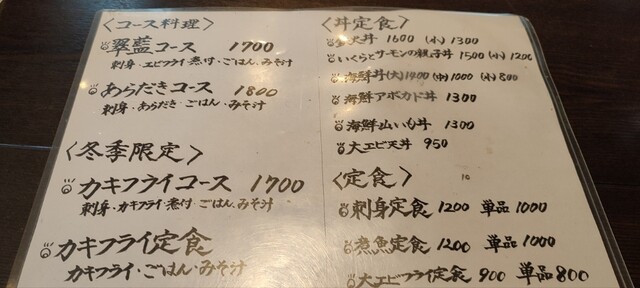 〈コース料理〉
翠藍コース 1700
刺身・エビフライ・煮付・ごはん・みそ汁
あらだきコース 1800
刺身・あらだき・ごはん・みそ汁
〈冬季限定〉
カキフライコース 1700
刺身・カキフライ・煮付・ごはん・みそ汁
カキフライ定食
カキフライ・ごはん・みそ汁
〈丼定食〉
丼 1600 (小) 1300
いくらとサーモンの親子丼 1500 (小) 1200
海鮮丼(大)1400 (中)1000 (小)800
海鮮アボカド丼 1300
海鮮山いも丼 1300
大エビ天丼 950
〈定食〉
刺身定食 1200 単品 1000
煮魚定食 1200 単品 1000
大エビフライ定食 900 単品 800